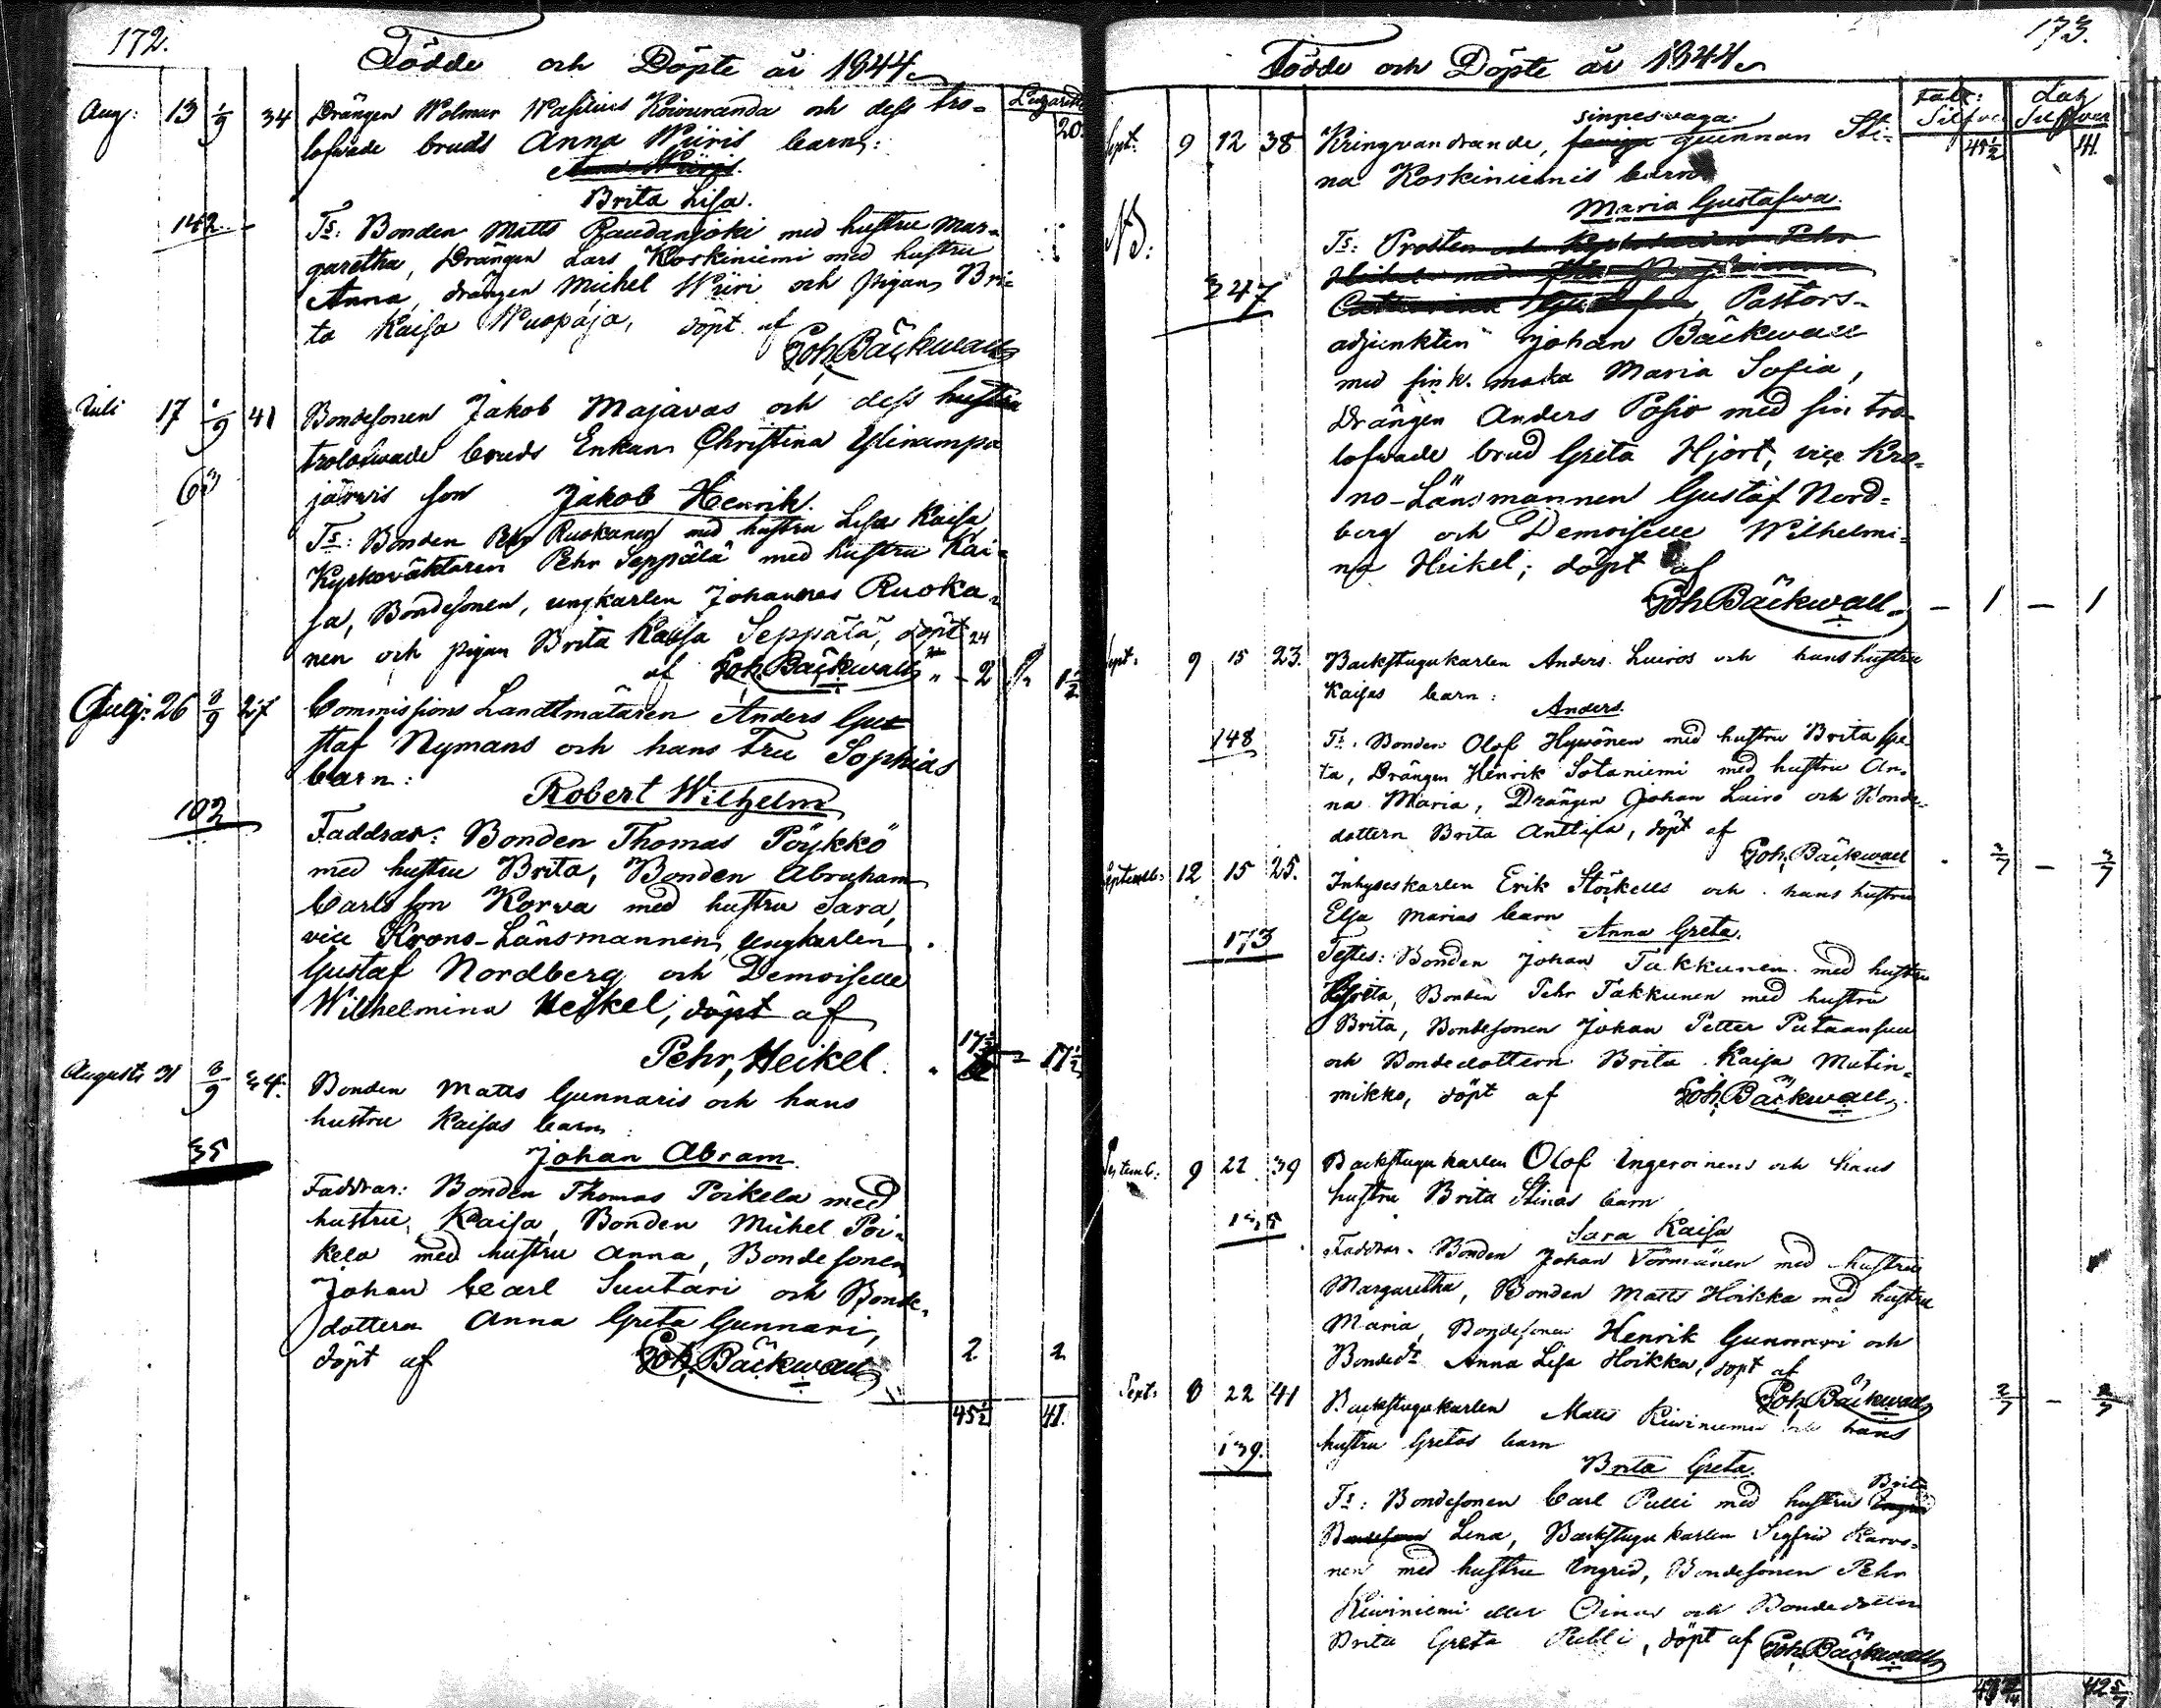 172.
Födde och Döpte år 1844.
Lazarettet
20.
Aug: 13 1/9 34 Drängen Wolmar Wasilius Koivuranda och dess tro-
lofwade bruds Anna Wiiris barn:
Anna Wiiris.
Brita Lisa.
142. Ts: Bonden Matts Raudanjoki med hustru Mar-
garetha, Drängen Lars Koskiniemi med hustru
Anna, drängen Michel Wiiri och pigan Bri-
ta Kaisa Wuopaja, döpt af
Joh. Bäckwall
Juli 17 1/9 41 Bondesonen Jakob Majavas och dess hustru
trolofwade bruds Enkan Christina Ylinampa
63 järwis son Jakob Henrik.
Ts: Bonden Pehr Ruokanen med hustru Lisa Kaisa
Kyrkoväktaren Pehr Seppälä med hustru Kai-
sa, Bondesonen, ungkarlen Johannes Ruoka-
nen och pigan Brita Kaisa Seppälä, döpt 24
af Joh. Bäckwall " - 2 1 1/2
Augj: 26 8/9 27 Commissions Landtmätaren Anders Gus
staf Nymans och hans Fru Sophias
barn:
Robert Wilhelm
102
Faddrar: Bonden Thomas Pöykkö
med hustru Brita, Bonden Abraham
Carlsson Korva med hustru Sara,
vice Krono-Länsmannen, Ungkarlen
Gustaf Nordberg och Demoiselle
Wilhelmina Heikel, döpt af
Pehr Heikel. 17 1/2 - 17 1/2
Augusti 31 8/9 34. Bonden Matts Gunnaris och hans
hustru Kaisas barn:
35 Johan Abram.
Faddrar: Bonden Thomas Poikela med
hustru Kaisa, Bonden Michel Poi-
kela med hustru Anna, Bondesonen
Johan Carl Suutari och Bonde-
dottern Anna Greta Gunnari,
döpt af Joh. Bäckwall 2 2
45 1/2 41.
173.
Födde och Döpte år 1844.
Fatt: Silfver Laz Silfver
45 1/2 41.
Sept: 9 12 38 Kringvandrande, sinnessvaga qwinnan Sti-
na Koskiniemis barn
Maria Gustafwa.
NB: Ts: Prosten och Kyrkoherden Pehr
Heikel med
247 Pastors-
adjunkten Johan Bäckwall
med sin k. maka Maria Sofia,
Drängen Anders Posio med sin tro-
lofwade brud Greta Hjort, vice Kro-
no-Länsmannen Gustaf Nord-
berg och Demoiselle Wilhelmi-
na Heikel; döpt af
Joh Bäckwall - 1 - 1
Sept: 9 15 23. Backstugukarlen Anders Luiros och hans hustru
Kaisas barn:
Anders.
148 Ts. Bonden Olof Hywönen med hustru Brita
ta, Drängen Henrik Sotaniemi med hustru An-
na Maria, Drängen Johan Luiro och Bonde-
dottern Brita Anttila, döpt af
Joh. Bäckwall 3/7 - 3/7
Septemb: 12 15 25. Inhyseskarlen Erik Stöckells och hans hustru
Elsa Marias barn
Anna Greta.
173 Testes: Bonden Johan Takkunen med hustru
Greta, Bonden Pehr Takkunen med hustru
Brita, Bondesonen Johan Petter Putaansuu
och Bondedottern Brita Kaisa Mutin-
mikko, döpt af Joh. Bäckwall
Septemb: 9 22 39 Backstugukarlen Olof Ingeroinens och hans
hustru Brita Stinas barn
135 Sara Kaisa
Faddrar. Bonden Johan Törmänen med hustru
Margaretha, Bonden Matts Hoikka med hustru
Maria, Bondesonen Henrik Gunnari och
Bondedr Anna Lisa Hoikka, döpt af
Joh. Bäckwall 2/7 - 2/7
Sept: 8 22 41 Backstugukarlen Matts Kiwiniemis och hans
hustru Gretas barn
139. Brita Greta.
Ts: Bondesonen Carl Pulli med hustru Ingrid Brita
Bondesonen Lena, Backstugukarlen Sigfrid Karvo-
nen med hustru Ingrid, Bondesonen Pehr
Kiwiniemi eller Oinas och Bondedottern
Brita Greta Pulli, döpt af Joh. Bäckwall